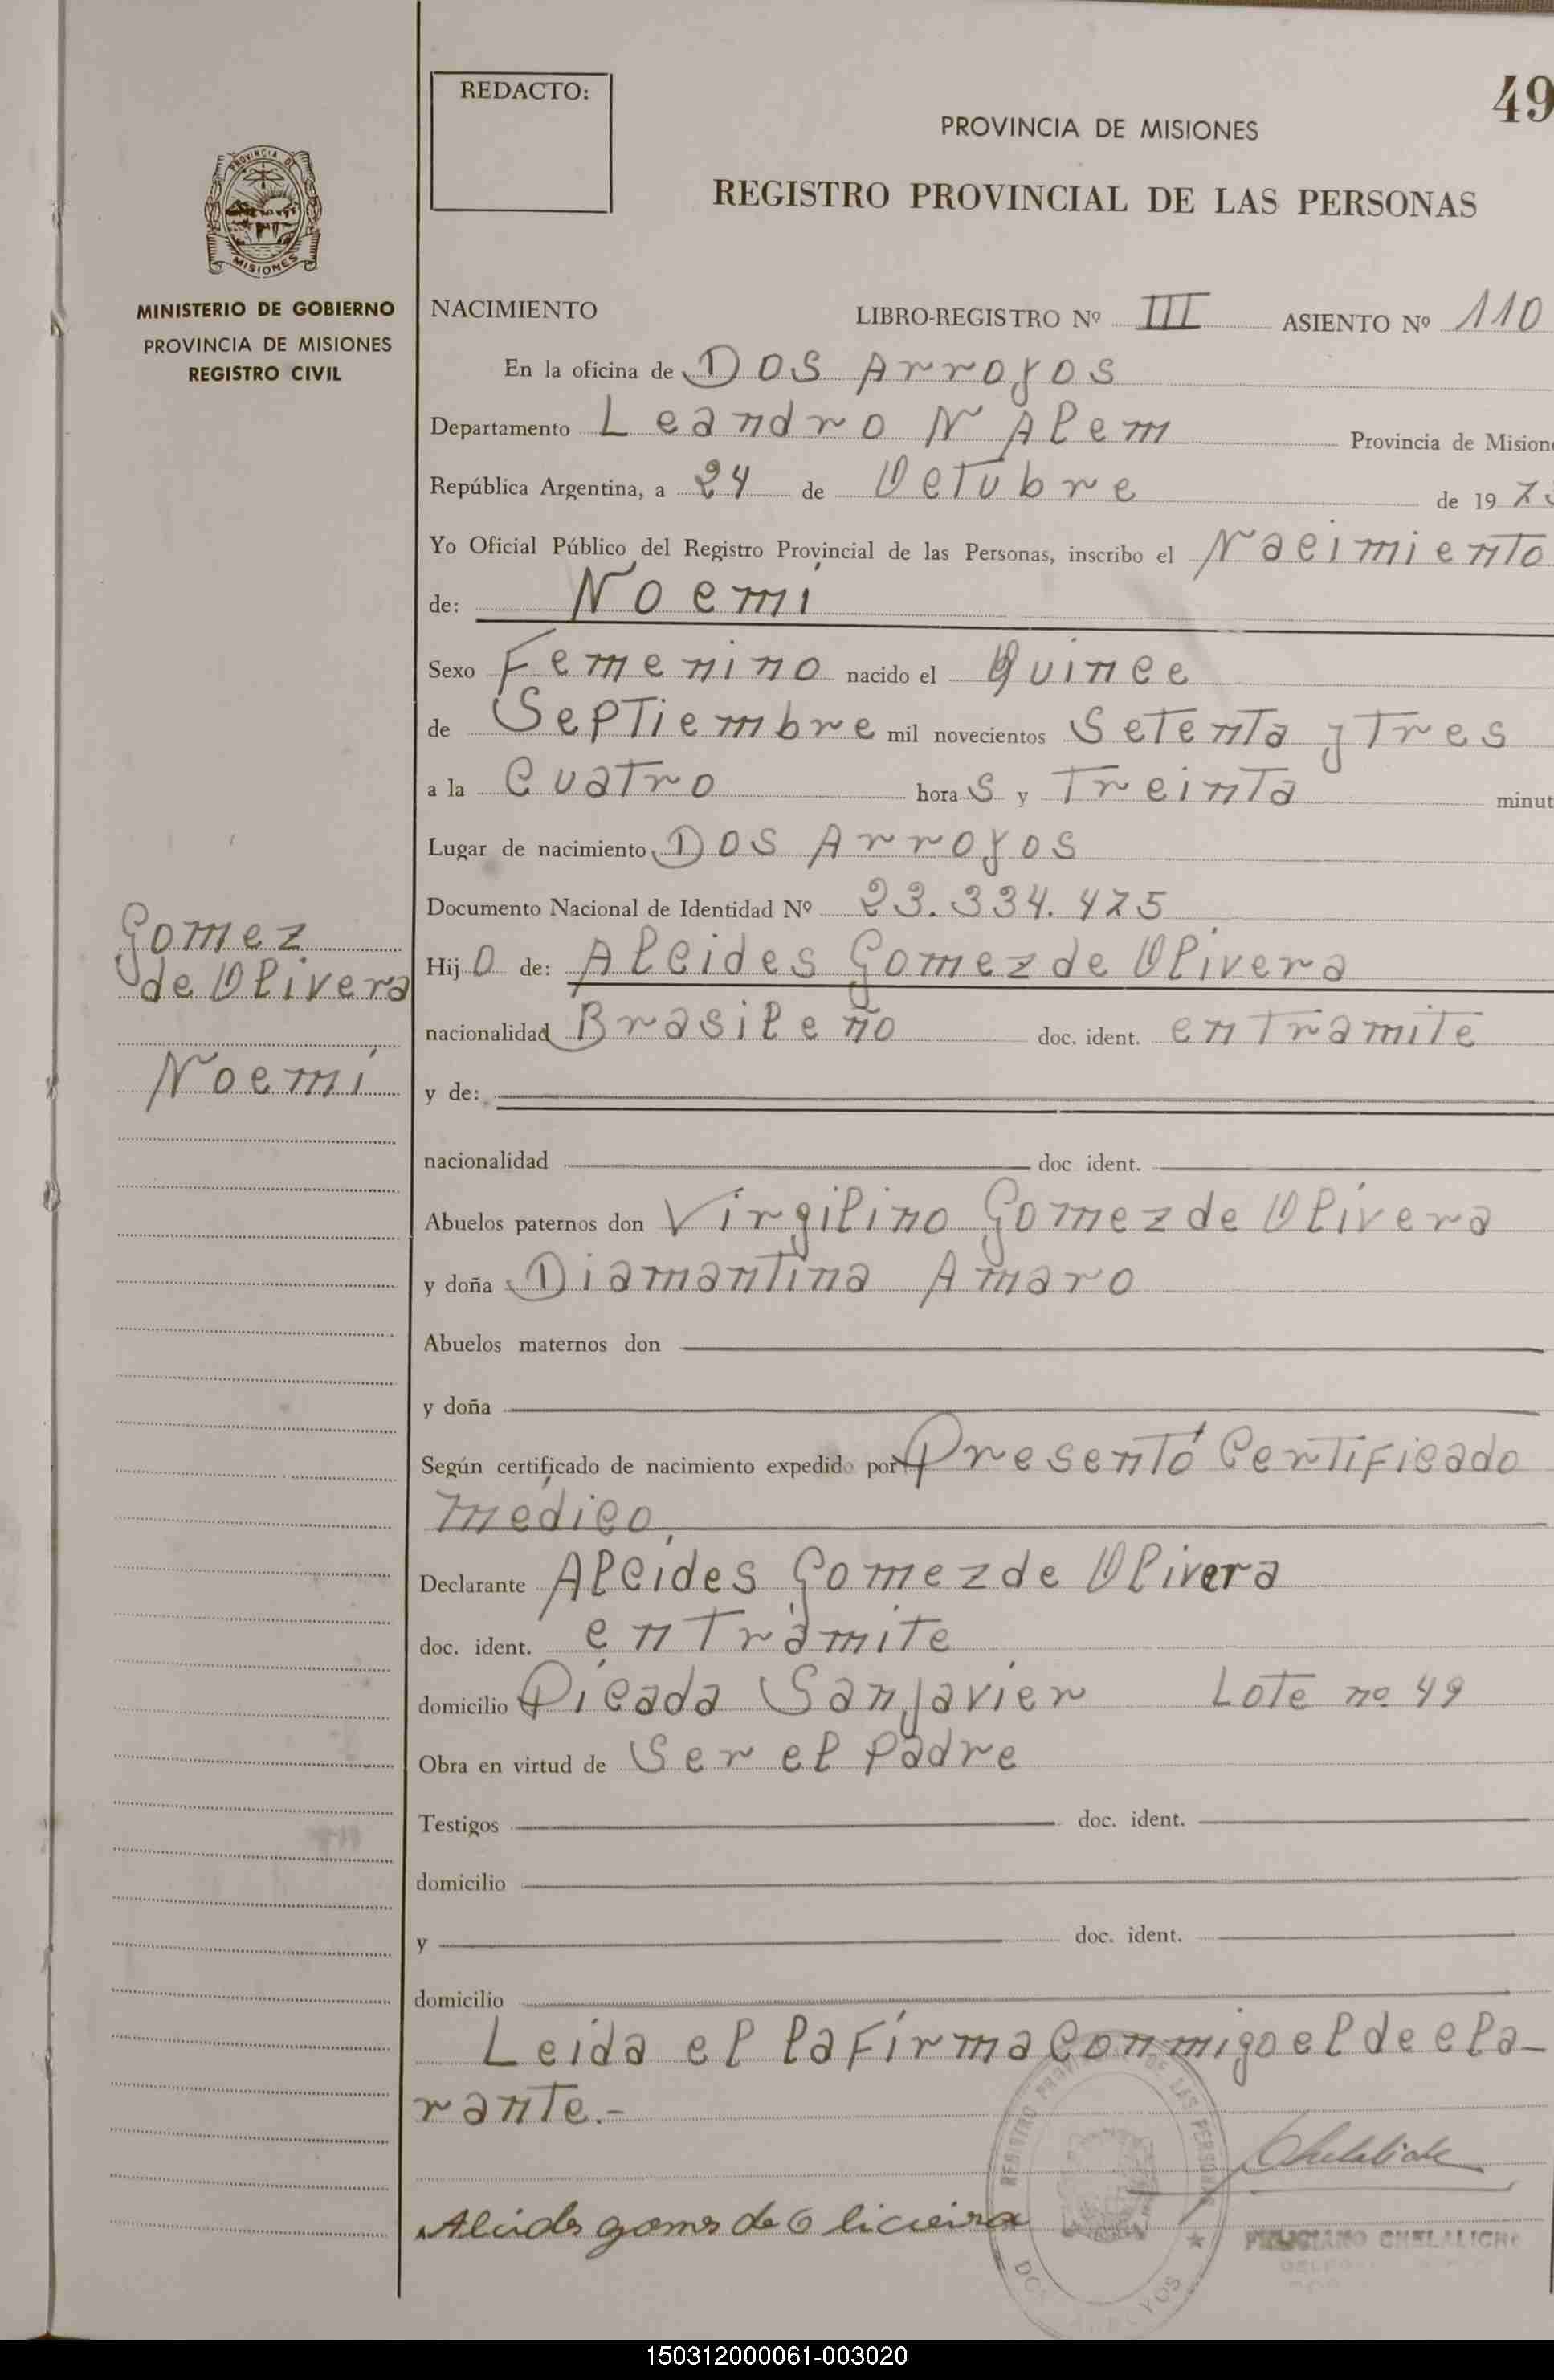 REDACTO:
49
PROVINCIA DE MISIONES
REGISTRO PROVINCIAL DE LAS PERSONAS
PROVINCIA DE
MISIONES
MINISTERIO DE GOBIERNO
PROVINCIA DE MISIONES
REGISTRO CIVIL
NACIMIENTO LIBRO-REGISTRO Nº III ASIENTO Nº 110
En la oficina de Dos Arroyos
Departamento Leandro N Alem Provincia de Mision
República Argentina, a 24 de Octubre de 19 7
Yo Oficial Público del Registro Provincial de las Personas, inscribo el Nacimiento
de: Noemí
Sexo Femenino nacido el Quince
de Septiembre mil novecientos Setenta y Tres
a la Cuatro hora s y Treinta minut
Lugar de nacimiento Dos Arroyos
Documento Nacional de Identidad Nº 23.334.475
Gomez
de Olivera
Noemí
Hij o de: Alcides Gomez de Olivera
nacionalidad Brasileño doc. ident. en Tramite
y de:
nacionalidad doc ident.
Abuelos paternos don Virgilino Gomez de Olivera
y doña Diamantina Amaro
Abuelos maternos don
y doña
Según certificado de nacimiento expedido por Presentó Certificado
médico,
Declarante Alcides Gomez de Olivera
doc. ident. en Trámite
domicilio Picada San Javier Lote nº 49
Obra en virtud de Ser el padre
Testigos doc. ident.
domicilio
y doc. ident.
domicilio
Leida el la Firma Conmigo el decla-
rante.-
REGISTRO PROV DE LAS PERSONAS
Alcides gomes de Olicveira
FELICIANO CHELALICHE
150312000061-003020